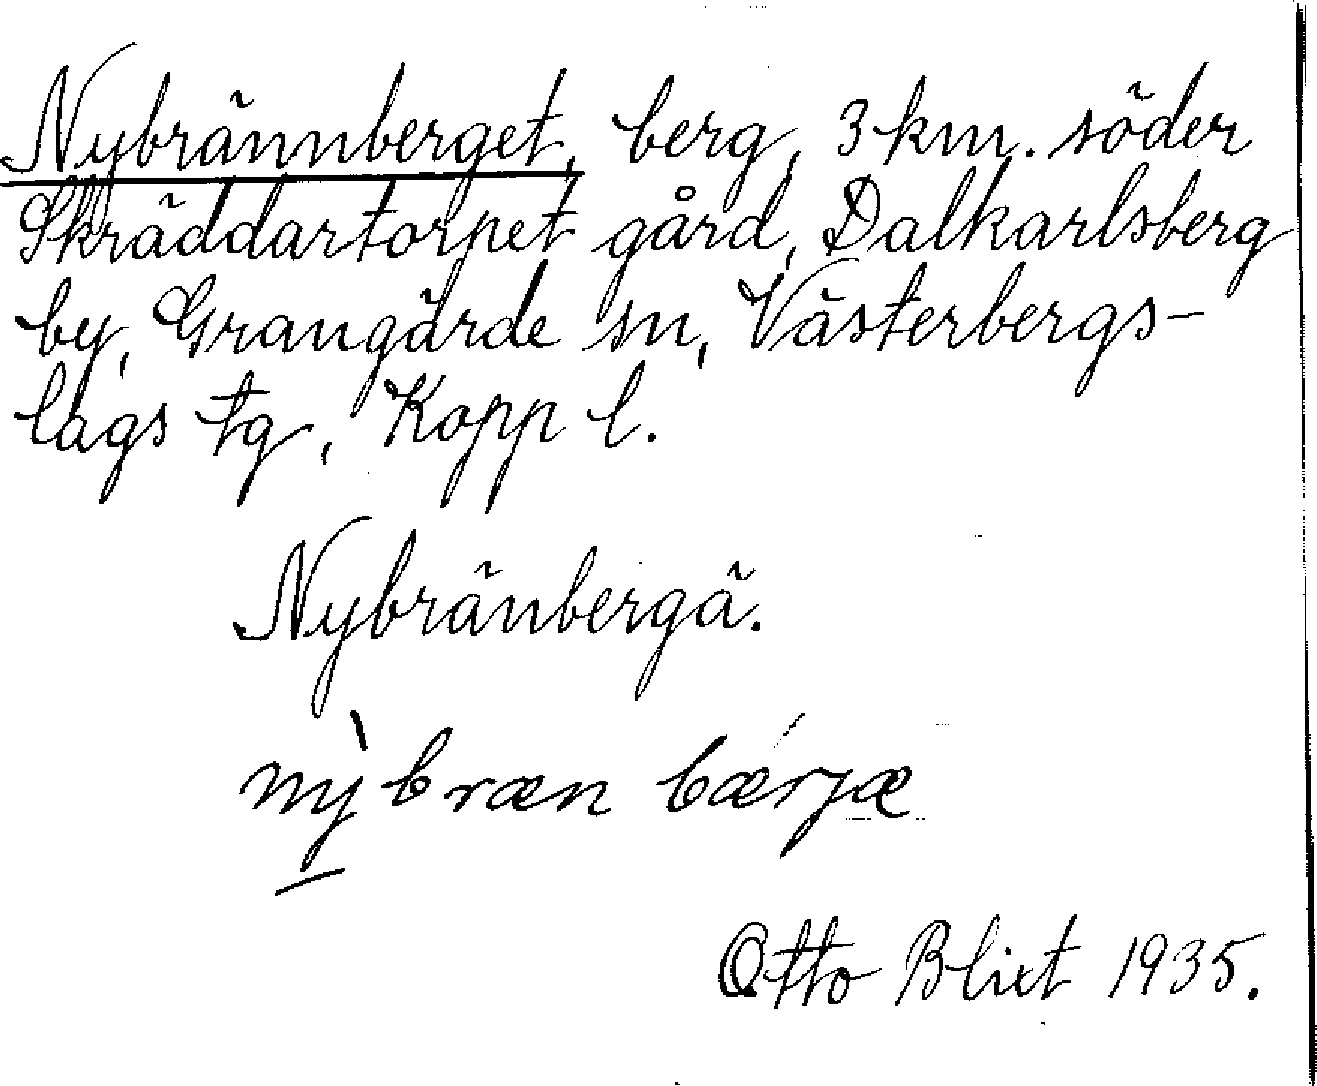 Nybrännberget, berg, 3 km. söder
Skräddartorpet gård, Dalkarlsberg
by, Grangärde sn, Västerbergs-
lags tg, Kopp l.
Nybränbergä.
nỳbræn bærjæ
Otto Blixt 1935.